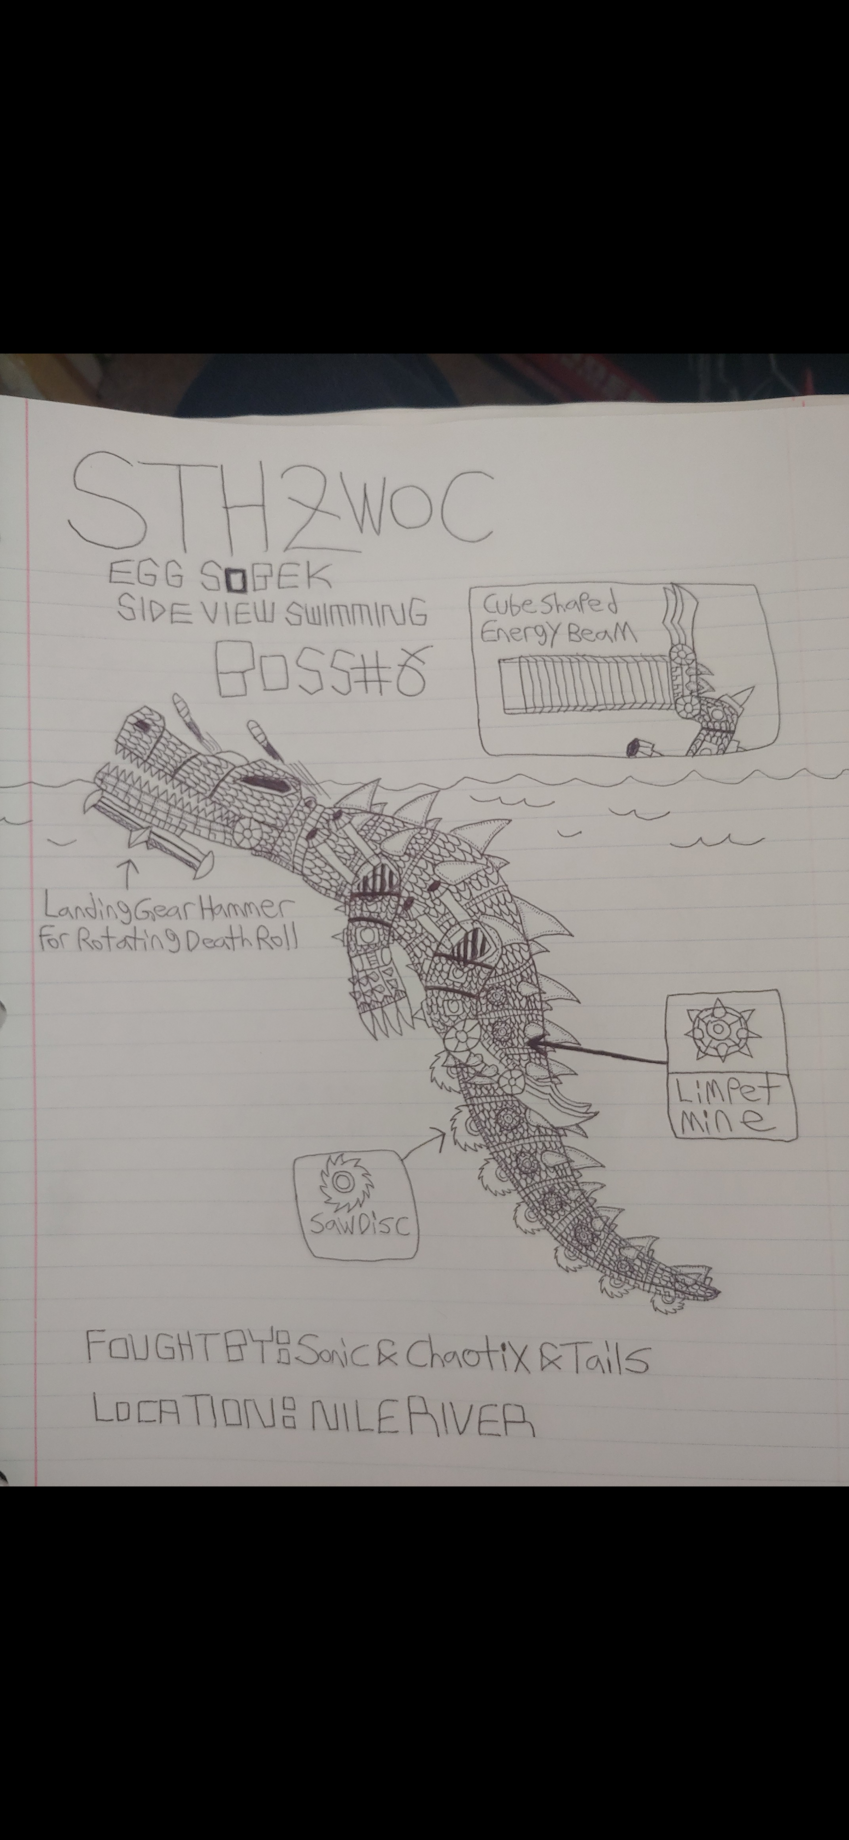 STH2WOC
EGG SOBEK
SIDE VIEW SWIMMING
BOSS#8
Cube Shaped
Energy Beam
Landing Gear Hammer
For Rotating Death Roll
Limpet
mine
SawDisc
FOUGHT BY: Sonic & Chaotix & Tails
LOCATION: NILE RIVER